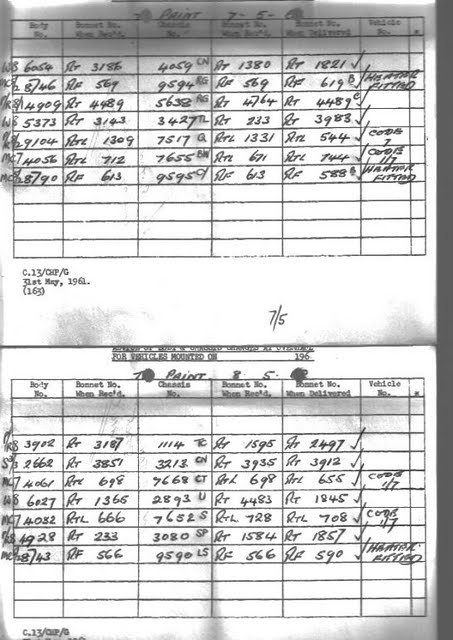 To PAINT 7-5-
Body No. Bonnet No. When Rec'd. Chassis No. Bonnet No. When Rec'd. Bonnet No. When Delivered Vehicle No. *
W8 6054 RT 3186 4059 CN RT 1380 RT 1821 ✓
28/46 RF 569 9594 RG RF 569 RF 619 B HEATER FITTED
14909 RT 4489 5638 RG RT 4764 RT 4489 C ✓
W8 5373 RT 3143 3427 TL RT 233 RT 3983 ✓
9104 RTL 1309 7517 Q RTL 1331 RTL 544 ✓ CODE 7
MC7 4056 RTL 712 7655 BW RTL 671 RTL 744 ✓ CODE 1/7
28/90 RF 613 9595 RF 613 RF 588 B HEATER FITTED
C.13/CHP/G
31st May, 1961.
(163)
7/5
FOR VEHICLES MOUNTED ON 196
PAINT 8-5-
Body No. Bonnet No. When Rec'd. Chassis No. Bonnet No. When Rec'd. Bonnet No. When Delivered Vehicle No. *
3902 RT 3187 1114 TC RT 1595 RT 2497 ✓
2662 RT 3851 3213 CN RT 3935 RT 3912 ✓
MC7 4061 RTL 698 7668 CT RTL 698 RTL 655 ✓ CODE 1/7
W8 6027 RT 1365 2893 U RT 4483 RT 1845 ✓
MC7 4032 RTL 666 7652 S RTL 728 RTL 708 ✓ CODE 1/7
4928 RT 233 3080 SP RT 1584 RT 1857 ✓
28/43 RF 566 9590 LS RF 566 RF 590 ✓ HEATER FITTED
C.13/CHP/G